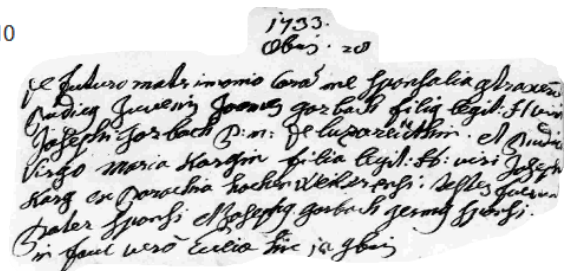 10
1733.
8bris. 28
de futuro matrimonio Corā me sponsalia
pudicq Juvenis Joannes Gorbach filiq legit: H: viri
Josephi Gorbach p: m: de Et pudica
Virgo Maria Kargin filia legit: H: viri Joseph
Karg ex Parochia hochenweilerensi: testes fuerunt
pater sponsi et Josephq Gorbach germq sponsi.
in facie vero Ecclia hic 9bris